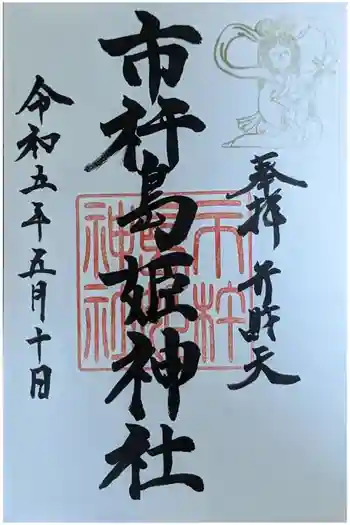 奉拝 弁財天
市杵島姫神社
令和五年五月十日
市杵
島姫
神社